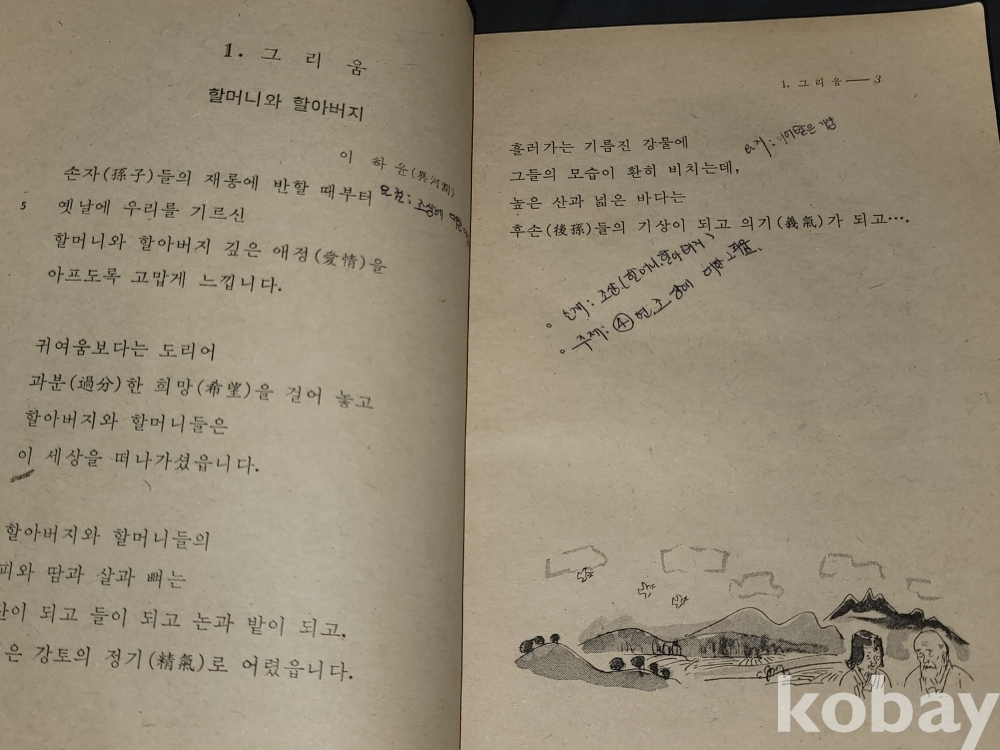 1. 그 리 움
할머니와 할아버지
이 하 윤(異河潤)
손자(孫子)들의 재롱에 반할 때부터
5 옛날에 우리를 기르신
할머니와 할아버지 깊은 애정(愛情)을
아프도록 고맙게 느낍니다.
귀여움보다는 도리어
과분(過分)한 희망(希望)을 걸어 놓고
할아버지와 할머니들은
이 세상을 떠나가셨읍니다.
할아버지와 할머니들의
피와 땀과 살과 뼈는
이 되고 들이 되고 논과 밭이 되고,
은 강토의 정기(精氣)로 어렸읍니다.
1. 그리움 — 3
흘러가는 기름진 강물에
그들의 모습이 환히 비치는데,
높은 산과 넓은 바다는
후손(後孫)들의 기상이 되고 의기(義氣)가 되고….
조상(할머니, 할아버지)
주제: ④ 연. 조상에 대한
kobay